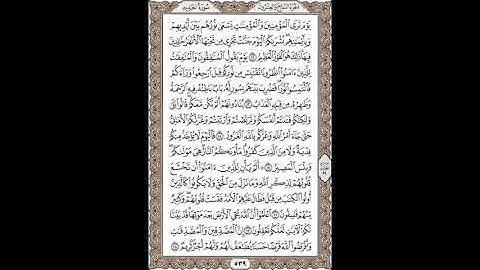 الجزء السابع والعشرون سورة الحديد
يَوْمَ تَرَى ٱلْمُؤْمِنِينَ وَٱلْمُؤْمِنَٰتِ يَسْعَىٰ نُورُهُم بَيْنَ أَيْدِيهِمْ
وَبِأَيْمَٰنِهِم بُشْرَىٰكُمُ ٱلْيَوْمَ جَنَّٰتٌ تَجْرِى مِن تَحْتِهَا ٱلْأَنْهَٰرُ خَٰلِدِينَ
فِيهَا ذَٰلِكَ هُوَ ٱلْفَوْزُ ٱلْعَظِيمُ ١٢ يَوْمَ يَقُولُ ٱلْمُنَٰفِقُونَ وَٱلْمُنَٰفِقَٰتُ
لِلَّذِينَ ءَامَنُوا۟ ٱنظُرُونَا نَقْتَبِسْ مِن نُّورِكُمْ قِيلَ ٱرْجِعُوا۟ وَرَآءَكُمْ
فَٱلْتَمِسُوا۟ نُورًا فَضُرِبَ بَيْنَهُم بِسُورٍ لَّهُۥ بَابٌۢ بَاطِنُهُۥ فِيهِ ٱلرَّحْمَةُ
وَظَٰهِرُهُۥ مِن قِبَلِهِ ٱلْعَذَابُ ١٣ يُنَادُونَهُمْ أَلَمْ نَكُن مَّعَكُمْ قَالُوا۟ بَلَىٰ
وَلَٰكِنَّكُمْ فَتَنتُمْ أَنفُسَكُمْ وَتَرَبَّصْتُمْ وَٱرْتَبْتُمْ وَغَرَّتْكُمُ ٱلْأَمَانِىُّ
حَتَّىٰ جَآءَ أَمْرُ ٱللَّهِ وَغَرَّكُم بِٱللَّهِ ٱلْغَرُورُ ١٤ فَٱلْيَوْمَ لَا يُؤْخَذُ مِنكُمْ
فِدْيَةٌ وَلَا مِنَ ٱلَّذِينَ كَفَرُوا۟ مَأْوَىٰكُمُ ٱلنَّارُ هِىَ مَوْلَىٰكُمْ
وَبِئْسَ ٱلْمَصِيرُ ١٥ أَلَمْ يَأْنِ لِلَّذِينَ ءَامَنُوٓا۟ أَن تَخْشَعَ
قُلُوبُهُمْ لِذِكْرِ ٱللَّهِ وَمَا نَزَلَ مِنَ ٱلْحَقِّ وَلَا يَكُونُوا۟ كَٱلَّذِينَ
أُوتُوا۟ ٱلْكِتَٰبَ مِن قَبْلُ فَطَالَ عَلَيْهِمُ ٱلْأَمَدُ فَقَسَتْ قُلُوبُهُمْ وَكَثِيرٌ
مِّنْهُمْ فَٰسِقُونَ ١٦ ٱعْلَمُوٓا۟ أَنَّ ٱللَّهَ يُحْىِ ٱلْأَرْضَ بَعْدَ مَوْتِهَا قَدْ بَيَّنَّا
لَكُمُ ٱلْءَايَٰتِ لَعَلَّكُمْ تَعْقِلُونَ ١٧ إِنَّ ٱلْمُصَّدِّقِينَ وَٱلْمُصَّدِّقَٰتِ
وَأَقْرَضُوا۟ ٱللَّهَ قَرْضًا حَسَنًا يُضَٰعَفُ لَهُمْ وَلَهُمْ أَجْرٌ كَرِيمٌ ١٨
٥٣٩